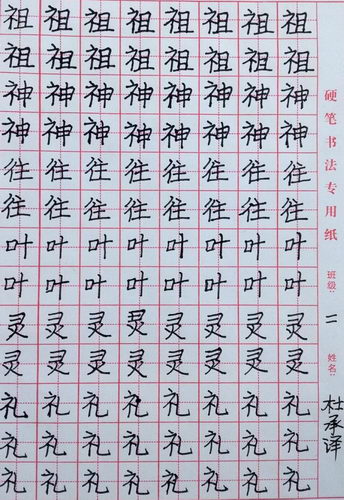 祖祖祖祖祖祖祖祖
祖祖祖祖祖祖祖祖
神神神神神神神神
神神神神神神神神
往往往往往往往往
往往往往往往往往
叶叶叶叶叶叶叶叶
叶叶叶叶叶叶叶叶
灵灵灵灵灵灵灵灵
灵灵灵灵灵灵灵灵
礼礼礼礼礼礼礼礼
礼礼礼礼礼礼礼礼
礼礼礼礼礼礼礼礼
硬笔书法专用纸
班级: 二
姓名: 杜承译